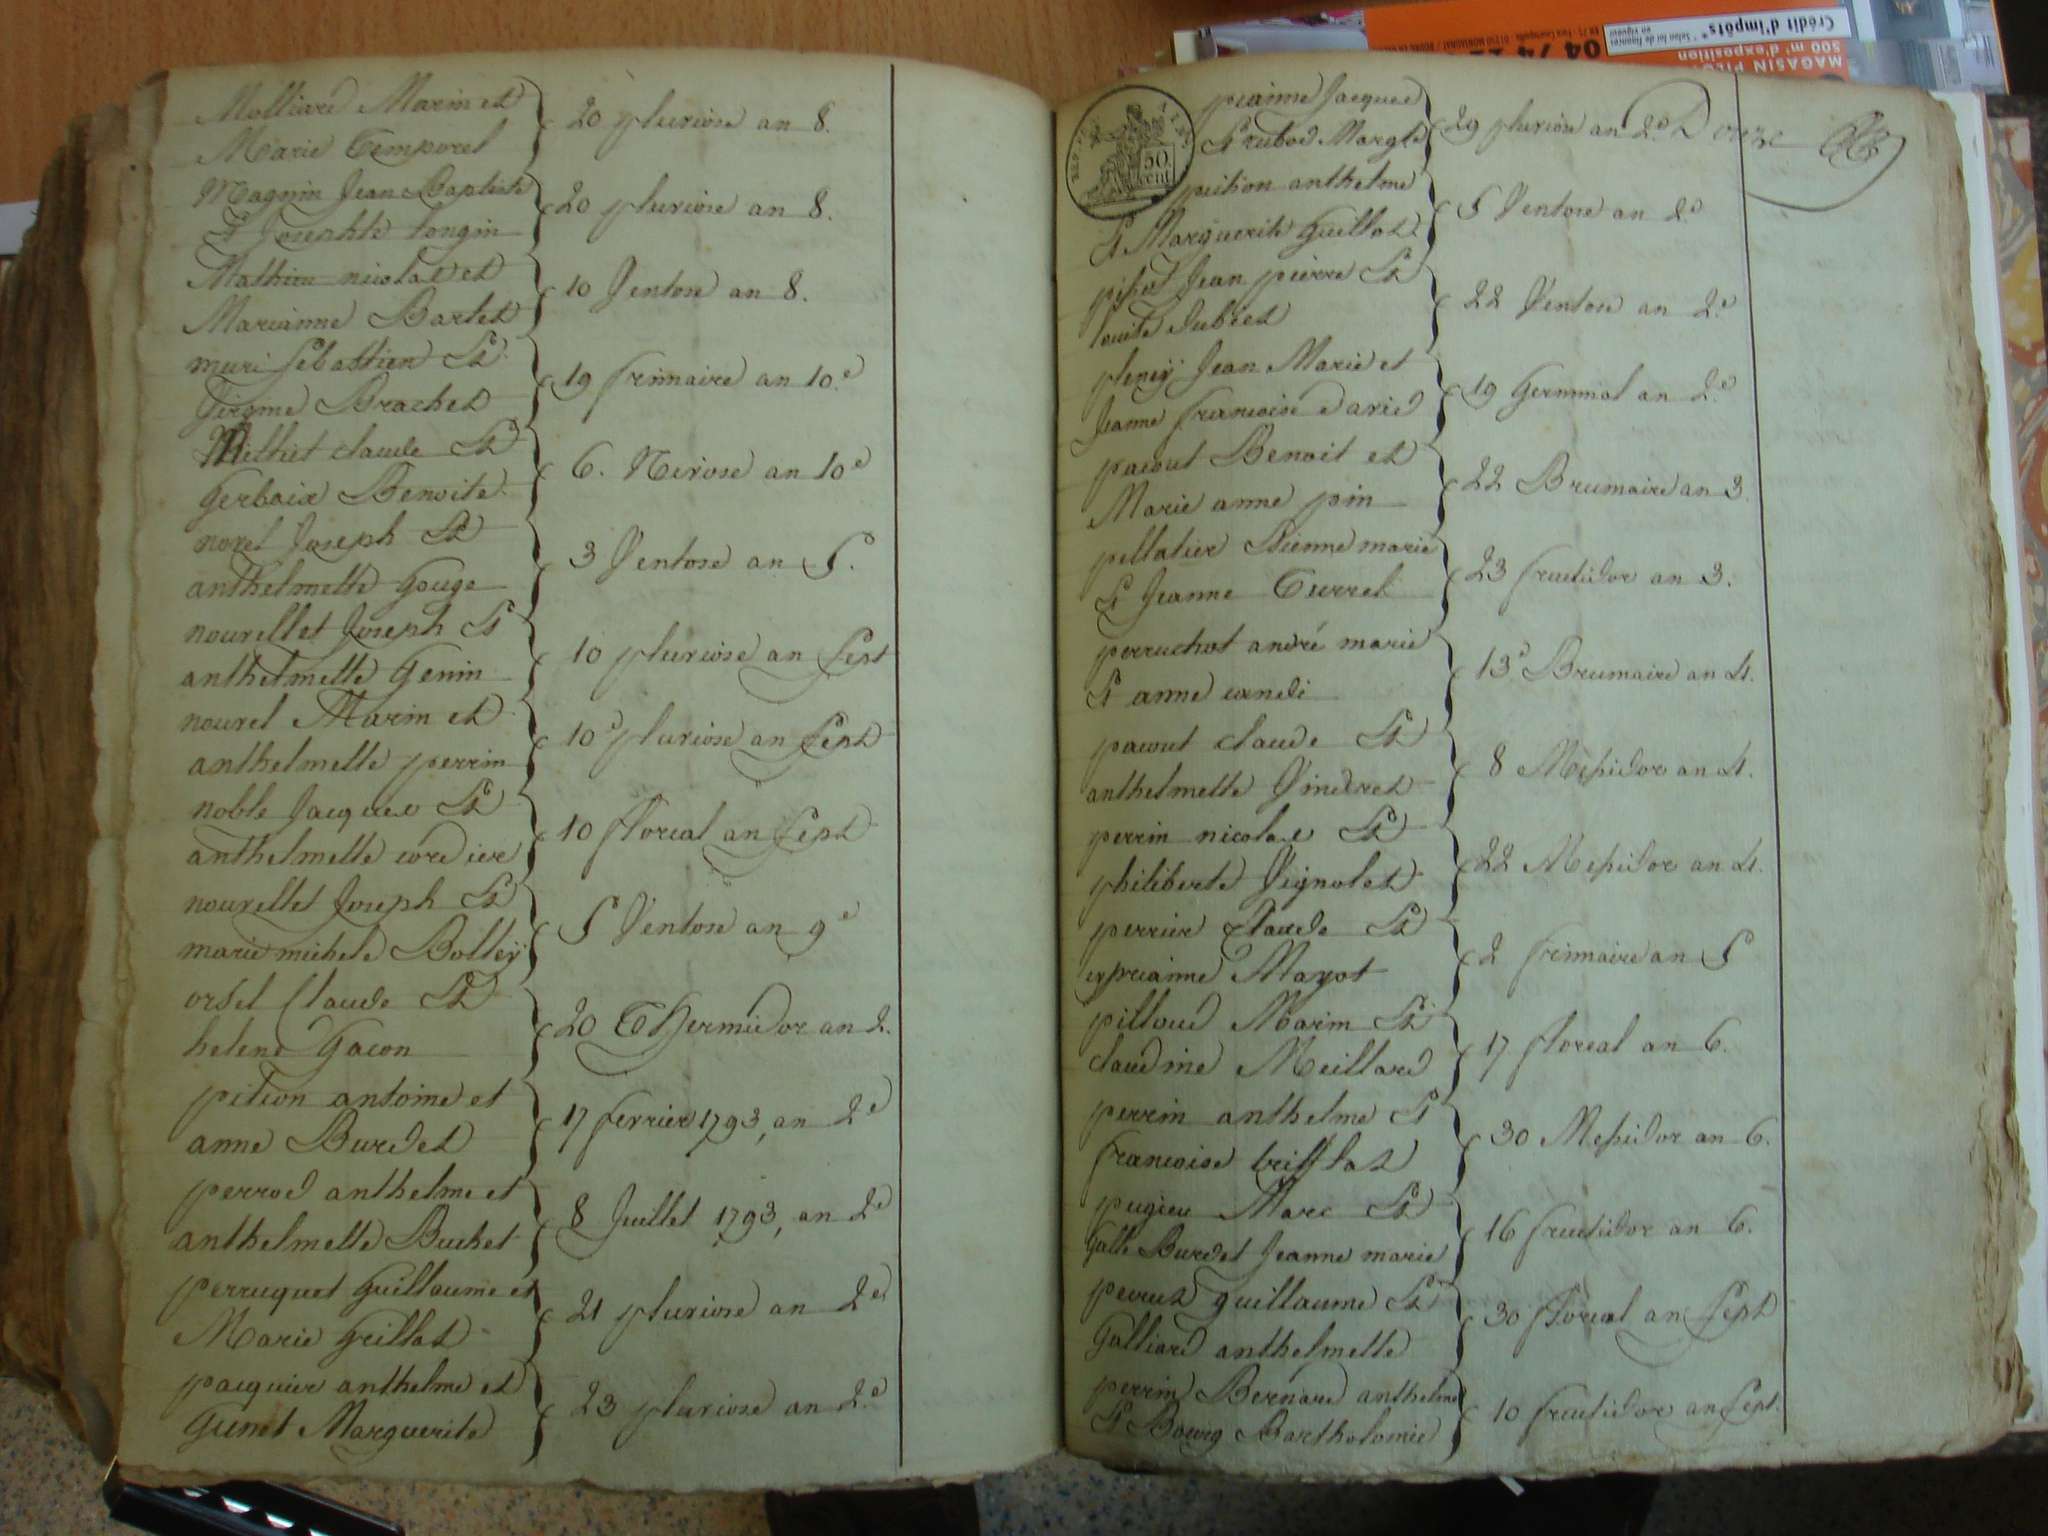 Molliard Marin et
Marie Temporel
20 pluviose an 8.
Magnin Jean Baptiste
Et Josephte longin
20 pluviose an 8.
Mathieu nicolas et
Marianne Bartet
10 Ventose an 8.
muri Sebastien Et
Virginie Brachet
19 frimaire an 10.e
Milliet claude Et
Gerbaix Benoite
6. Nivose an 10e
novel Joseph Et
anthelmette Gouge
3 Ventose an 5.
nouvellet Joseph Et
anthelmette Genin
10 pluviose an Sept
nouvel Marin et
anthelmette perrin
10 pluviose an Sept
noble Jacques Et
anthelmette cordier
10 floreal an Sept
nouvellet Joseph Et
marie michele Bolleÿ
5 Ventose an 9e
orsel Claude Et
helene Gacon
20 Thermidor an 2.
pition antoine et
anne Burdet
17 fevrier 1793, an 2e
perrod anthelme et
anthelmette Buchet
8 Juillet 1793, an 2e
perruquet Guillaume et
Marie Grillat
21 pluviose an 2e
pacquier anthelme et
Gunet Marguerite
23 pluviose an 2.e
50 cent
pianne Jacques
Et rubod Margte
29 pluviose an 2.e
onze
pition anthelme
Et Marguerite Guillot
5 Ventose an 2e
Jean pierre Et
louise Dubiez
22 Ventose an 2.e
pleneÿ Jean Marie et
Jeanne francoise david
19 Germinal an 2.e
pacout Benoit et
Marie anne pin
22 Brumaire an 3.
pellatier Etienne marie
Et Jeanne Turrel
23 fructidor an 3.
perruchot andré marie
Et anne
13 Brumaire an 4.
pacout claude Et
anthelmette Vindret
8 Messidor an 4.
perrin nicolas Et
philiberte Vignolet
22 Messidor an 4.
perrier Claude Et
cyprianne Mayot
2 frimaire an 5
pilloud Marin Et
claudine Meillard
17 floreal an 6.
perrin anthelme Et
francoise trifflat
30 Messidor an 6.
pugieu Marc Et
Burdet Jeanne marie
16 fructidor an 6.
guillaume Et
Galliard anthelmette
30 floreal an Sept
perrin Bernard anthelme
Et Bourg Bartholomie
10 fructidor an Sept.
Crédit d'impôts*
500 m² d'exposition
MAGASIN
04 74